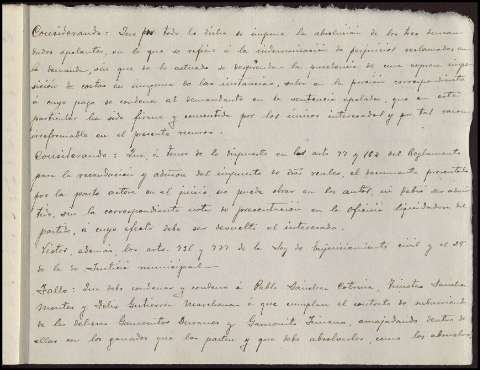 Considerando: Que por todo lo dicho se impone la absolución de los tres deman-
dados apelantes, en lo que se refiere á la indemnización de perjuicios reclamados en
la demanda, sin que de lo actuado se desprenda la procedencia de una expresa impo-
sición de costas en ninguna de las instancias, salvo en la porción correspondiente
á cuyo pago se condena al demandante en la sentencia apelada, que en este
particular ha sido firme y consentida por los únicos interesados y por tal razón
irreformable en el presente recurso.
Considerando: Que, á tenor de lo dispuesto en los arts 77 y 182 del Reglamento
para la recaudación y admón del impuesto de dros reales, el documento presentado
por la parte actora en el juicio no puede obrar en los autos, ni debió ser admi-
tido, sin la correspondiente nota de presentación en la oficina liquidadora del
partido, á cuyo efecto debe ser devuelto al interesado.
Vistos, además, los arts. 736 y 737 de la Ley de Enjuiciamiento civil y el 25
de la de Justicia municipal
Fallo: Que debo condenar y condeno á Pablo Sánchez Cotrina, Sánchez
Montes y Delio Gutiérrez á que cumplan el contrato de
de las dehesas Gamonitos y Gamonita amajadando dentro de
ellas con los ganados que los pasten y que debo absolverlos, como los absuelvo,